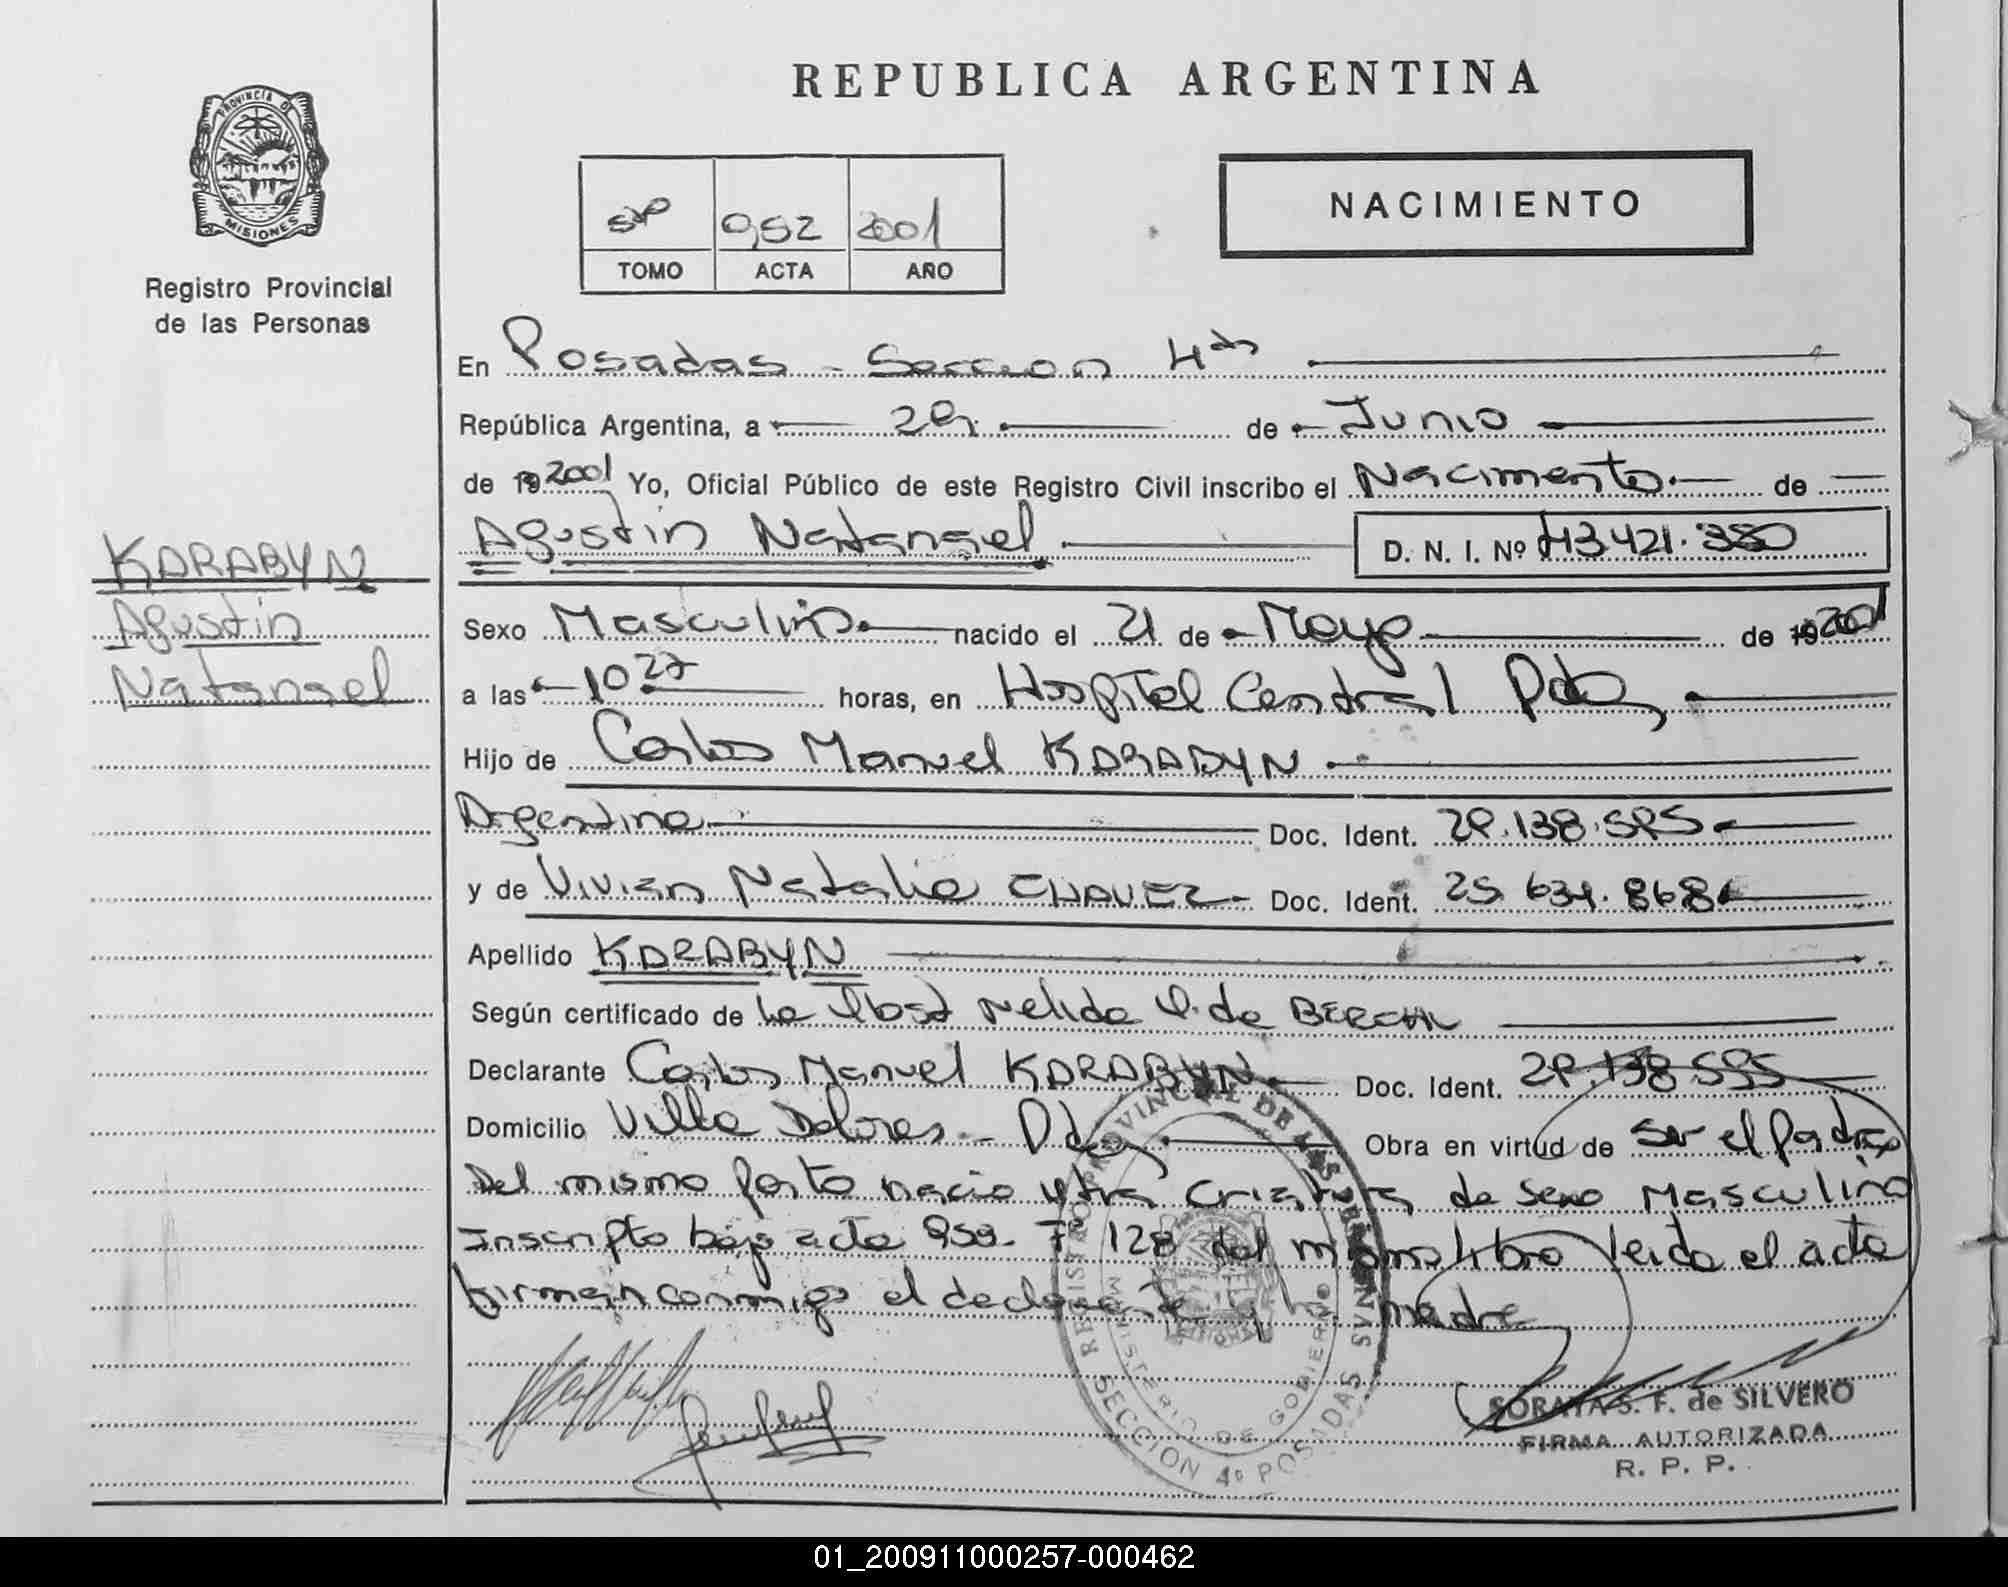 REPUBLICA ARGENTINA
PROVINCIA DE
MISIONES
Registro Provincial
de las Personas
2001
TOMO ACTA AÑO
NACIMIENTO
En Posadas - Seccion 4ta
República Argentina, a 29 de Junio
de 19 2001 Yo, Oficial Público de este Registro Civil inscribo el Nacimiento de
Agustin Natanael D. N. I. Nº 43.421.380
KARABYN
Agustin
Natanael
Sexo Masculino nacido el 21 de Mayo de 19 2001
a las 10 27 horas, en Hospital Central Pdas
Hijo de Carlos Manuel KARABYN
Argentino Doc. Ident. 29.138.595
y de Vivian Natalia CHAVEZ Doc. Ident. 25.634.868
Apellido KARABYN
Según certificado de la Obst Nelida de
Declarante Carlos Manuel KARABYN Doc. Ident. 29.138.595
Domicilio Villa Dolores - Pdas Obra en virtud de ser el padre
Del mismo parto nacio otra criatura de sexo Masculino
Inscripto bajo acta Fº 128 del mismo libro leida el acta
firman conmigo el declarante y la madre
REGISTRO PROVINCIAL DE LAS PERSONAS
MINISTERIO DE GOBIERNO
SECCION 4º POSADAS
SORAYA S. F. de SILVERO
FIRMA AUTORIZADA
R. P. P.
01_200911000257-000462